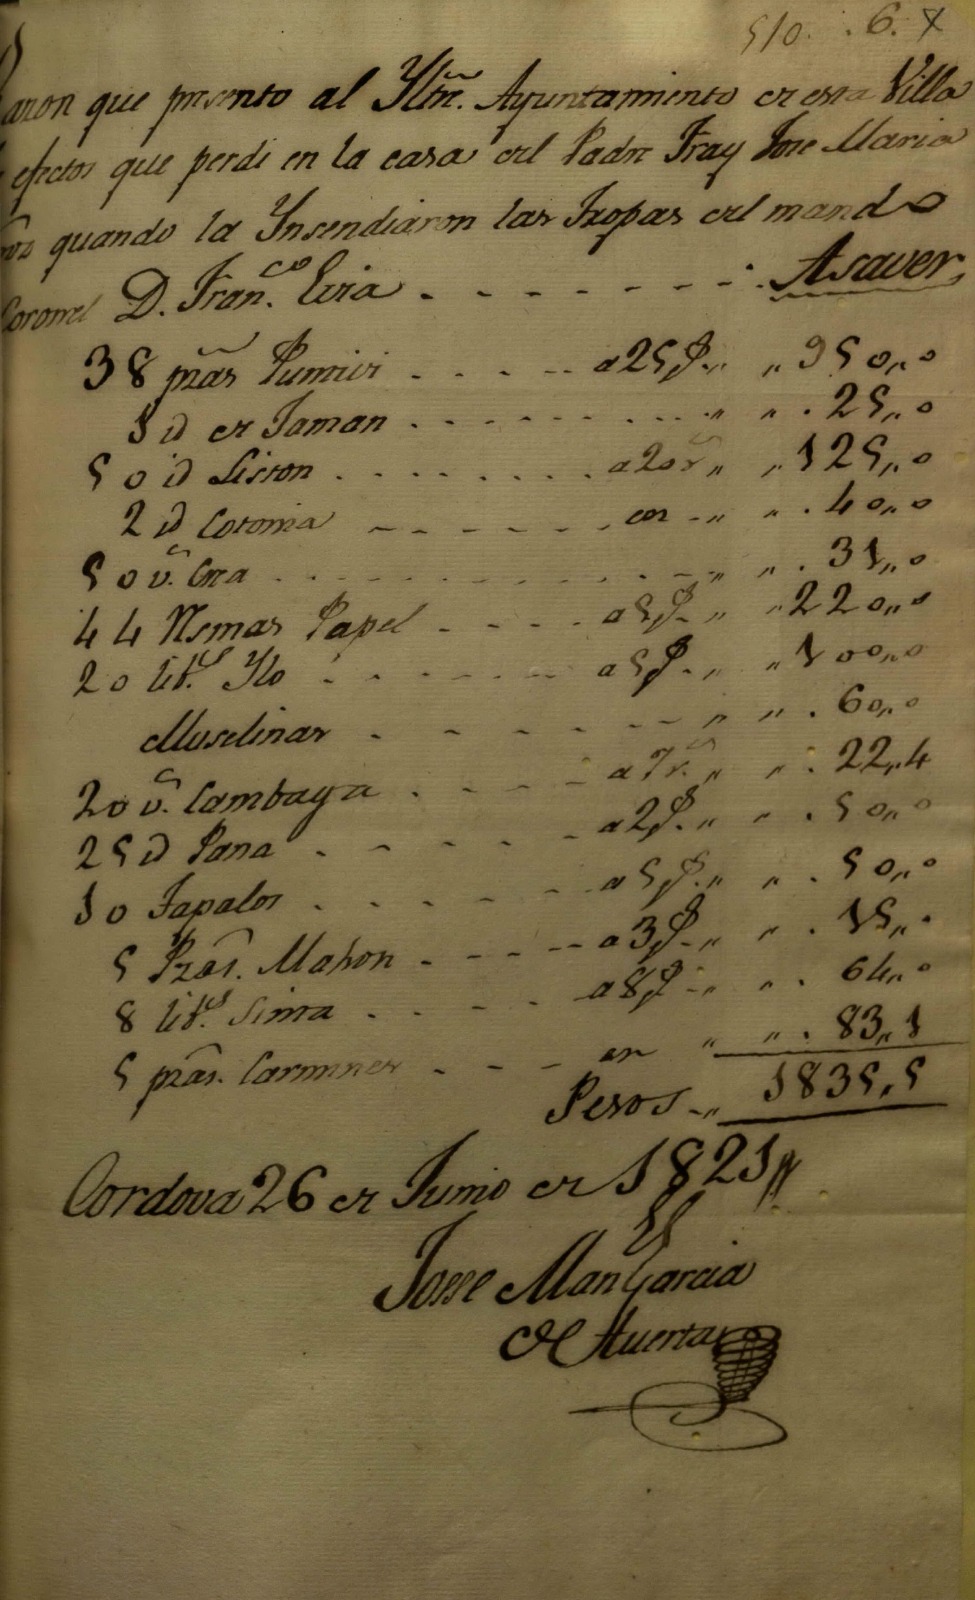 510. . 6. X
azon que presento al Yltrê. Ayuntamiento de esta Villa
efectos que perdi en la casa del Padre Fray Jose Maria
quando la Ynsendiaron las Tropas del mando
Coronel D. Fran.co Evia . - - - - - - - . Asaver,
38 pzas . . - . -- a 25 P. „ „ 950„0
1 id de Jaman . - . - - . . . . . . . „ „ . 25„0
50 id Liston . . . . . . . . a 20 r.s „ „ 125„0
2 id Cotonia - - - - - - . en - „ „ . 40„0
50 v.s Crea . . . . . . . . . . . - - „ „ . 31„0
44 Resmas Papel . - - . . a 5 P. „ „ 220„0
20 lib.s Ylo . . . . - . -- a 5 P. „ „ 100„0
Muselinas . - - - - - - - „ „ . 60„0
20 v.s Cambaya . . . - - a 7 r.s „ „ . 22„4
25 id Pana . - - - - - a 2 P. „ „ . 50„0
10 Tapalos . . . . . - - a 5 P. „ „ . 50„0
5 Pzas. Mahon . - - - -- a 3 P. „ „ . 15„.
8 lib.s Sinta . . . . - - a 8 P. „ „ . 64„0
5 pzas. - - - en „ „ . 83„1
Pesos - „ 1835„5
Cordova 26 de Junio de 1821
Jose Man.l Garcia
de Huerta